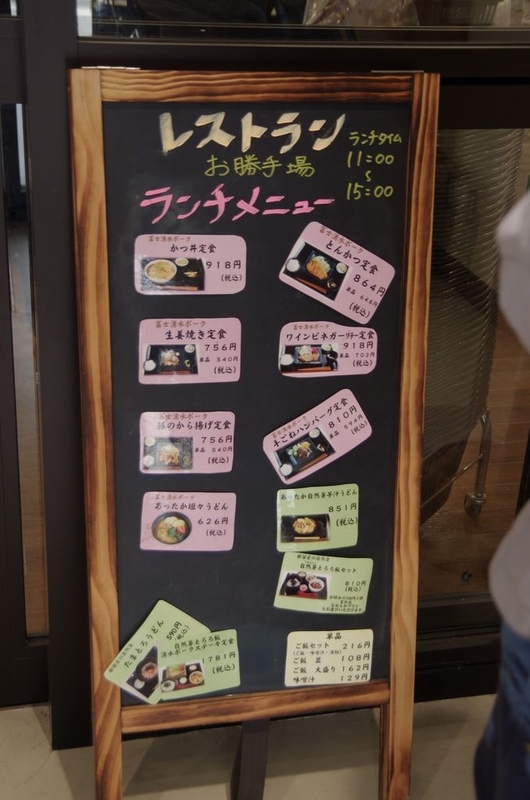 レストラン
お勝手場
ランチタイム
11:00
~
15:00
ランチメニュー
富士湧水ポーク
かつ丼定食
918円
(税込)
富士湧水ポーク
とんかつ定食
864円
単品 648円
(税込)
富士湧水ポーク
生姜焼き定食
756円
単品 540円
(税込)
富士湧水ポーク
ワインビネガーソテー定食
918円
単品 702円
(税込)
富士湧水ポーク
豚のから揚げ定食
756円
単品 540円
(税込)
富士湧水ポーク
手ごねハンバーグ定食
810円
単品 594円
(税込)
富士湧水ポーク
あったか坦々うどん
626円
(税込)
あったか自然薯芋汁うどん
851円
(税込)
自然薯とろろ飯セット
810円
(税込)
たまとろうどん
590円
(税込)
自然薯とろろ飯
湧水ポークステーキ定食
1781円
(税込)
単品
ご飯セット 216円
(ご飯・味噌汁・漬物)
ご飯 並 108円
ご飯 大盛り 162円
味噌汁 129円